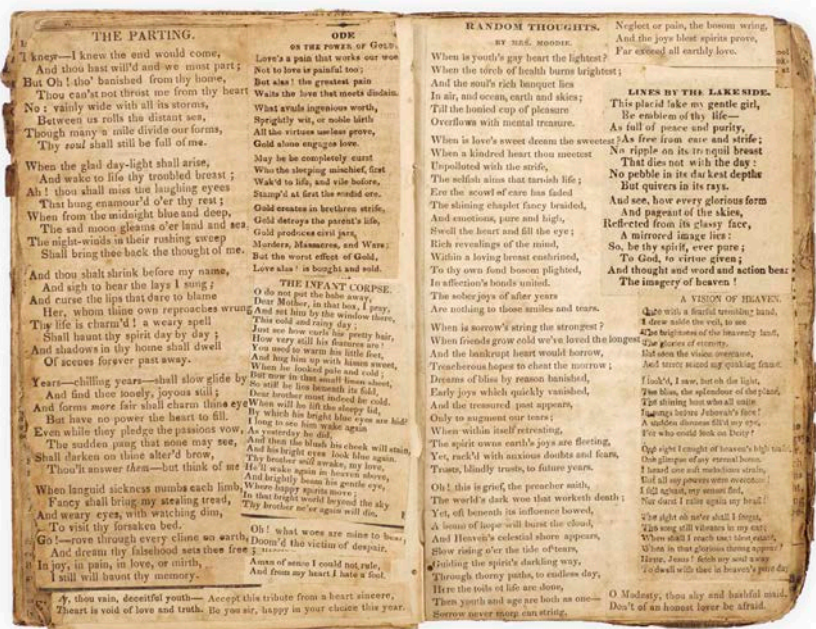 THE PARTING.
I knew—I knew the end would come,
And thou hast will'd and we must part;
But Oh! tho' banished from thy home,
Thou can'st not thrust me from thy heart
No: vainly wide with all its storms,
Between us rolls the distant sea,
Though many a mile divide our forms,
Thy soul shall still be full of me.
When the glad day-light shall arise,
And wake to life thy troubled breast;
Ah! thou shall miss the laughing eyees
That hung enamour'd o'er thy rest;
When from the midnight blue and deep,
The sad moon gleams o'er land and sea,
The night-winds in their rushing sweep
Shall bring thee back the thought of me.
And thou shalt shrink before my name,
And sigh to hear the lays I sung;
And curse the lips that dare to blame
Her, whom thine own reproaches wrung
Thy life is charm'd! a weary spell
Shall haunt thy spirit day by day;
And shadows in thy home shall dwell
Of scenes forever past away.
Years—chilling years—shall slow glide by
And find thee lonely, joyous still;
And forms more fair shall charm thine eye
But have no power the heart to fill.
Even while they pledge the passions vow,
The sudden pang that none may see,
Shall darken on thine alter'd brow,
Thou'lt answer them—but think of me
When languid sickness numbs each limb,
Fancy shall bring my stealing tread,
And weary eyes, with watching dim,
To visit thy forsaken bed.
Go!—rove through every clime on earth,
And dream thy falsehood sets thee free;
In joy, in pain, in love, or mirth,
I still will haunt thy memory.
thou vain, deceitful youth— Accept this tribute from a heart sincere,
heart is void of love and truth. Be you sir, happy in your choice this year.
ODE
ON THE POWER OF GOLD.
Love's a pain that works our woe
Not to love is painful too;
But alas! the greatest pain
Waits the love that meets disdain.
What avails ingenious worth,
Sprightly wit, or noble birth
All the virtues useless prove,
Gold alone engages love.
May he be completely curst
Who the sleeping mischief, first
Wak'd to life, and vile before,
Stamp'd at first the sordid ore.
Gold creates in brethren strife,
Gold destroys the parent's life,
Gold produces civil jars,
Murders, Massacres, and Wars;
But the worst effect of Gold,
Love alas! is bought and sold.
THE INFANT CORPSE.
O do not put the babe away,
Dear Mother, in that box, I pray,
And set him by the window there,
This cold and rainy day;
Just see how curls his pretty hair,
How very still his features are!
You used to warm his little feet,
And hug him up with kisses sweet,
When he looked pale and cold;
But now in that small linen sheet,
So still he lies beneath its fold,
Dear brother must indeed be cold.
When will he lift the sleepy lid,
By which his bright blue eyes are hid?
I long to see him wake again
As yesterday he did,
And then the blush his cheek will stain,
And his bright eyes look blue again.
Thy brother will awake, my love,
He'll wake again in heaven above,
And brightly beam his gentle eye,
Where happy spirits move;
In that bright world beyond the sky
Thy brother ne'er again will die.
Oh! what woes are mine to bear,
Doom'd the victim of despair.
A man of sense I could not rule,
And from my heart I hate a fool.
RANDOM THOUGHTS.
BY MRS. MOODIE.
When is youth's gay heart the lightest?
When the torch of health burns brightest;
And the soul's rich banquet lies
In air, and ocean, earth and skies;
Till the honied cup of pleasure
Overflows with mental treasure.
When is love's sweet dream the sweetest?
When a kindred heart thou meetest
Unpolluted with the strife,
The selfish aims that tarnish life;
Ere the scowl of care has faded
The shining chaplet fancy braided,
And emotions, pure and high,
Swell the heart and fill the eye;
Rich revealings of the mind,
Within a loving breast enshrined,
To thy own fond bosom plighted,
In affection's bonds united.
The sober joys of after years
Are nothing to those smiles and tears.
When is sorrow's string the strongest?
When friends grow cold we've loved the longest
And the bankrupt heart would borrow,
Treacherous hopes to cheat the morrow;
Dreams of bliss by reason banished,
Early joys which quickly vanished,
And the treasured past appears,
Only to augment our tears;
When within itself retreating,
The spirit owns earth's joys are fleeting,
Yet, rack'd with anxious doubts and fears,
Trusts, blindly trusts, to future years.
Oh! this is grief, the preacher saith,
The world's dark woe that worketh death;
Yet, oft beneath its influence bowed,
A beam of hope will burst the cloud,
And Heaven's celestial shore appears,
Slow rising o'er the tide of tears,
Guiding the spirit's darkling way,
Through thorny paths, to endless day,
Here the toils of life are done,
Then youth and age are both as one—
Sorrow never more can string,
Neglect or pain, the bosom wring,
And the joys blest spirits prove,
Far exceed all earthly love.
LINES BY THE LAKE SIDE.
This placid lake my gentle girl,
Be emblem of thy life—
As full of peace and purity,
As free from care and strife;
No ripple on its tranquil breast
That dies not with the day:
No pebble in its darkest depths
But quivers in its rays.
And see, how every glorious form
And pageant of the skies,
Reflected from its glassy face,
A mirrored image lies:
So, be thy spirit, ever pure;
To God, to virtue given;
And thought and word and action bear
The imagery of heaven!
A VISION OF HEAVEN.
Once with a fearful trembling hand,
I drew aside the veil, to see
The brightness of the heavenly land,
The glories of eternity.
But soon the vision overcame,
And terror seized my quaking frame.
I look'd, I saw, but oh the light,
The bliss, the splendour of the place,
The shining host who all unite
In songs before Jehovah's face!
A sudden dimness fill'd my eye,
For who could look on Deity?
One sight I caught of heaven's high
One glimpse of my eternal home,
I heard one soft melodious strain,
But all my powers were overcome!
I fell aghast, my senses fled,
Nor durst I raise again my head!
The sight oh ne'er shall I forget,
The song still vibrates in my ear;
When shall I reach that blest estate,
When in that glorious throng appear?
Haste, Jesus! fetch my soul away
To dwell with thee in heaven's pure day
O Modesty, thou shy and bashful maid,
Don't of an honest lover be afraid.